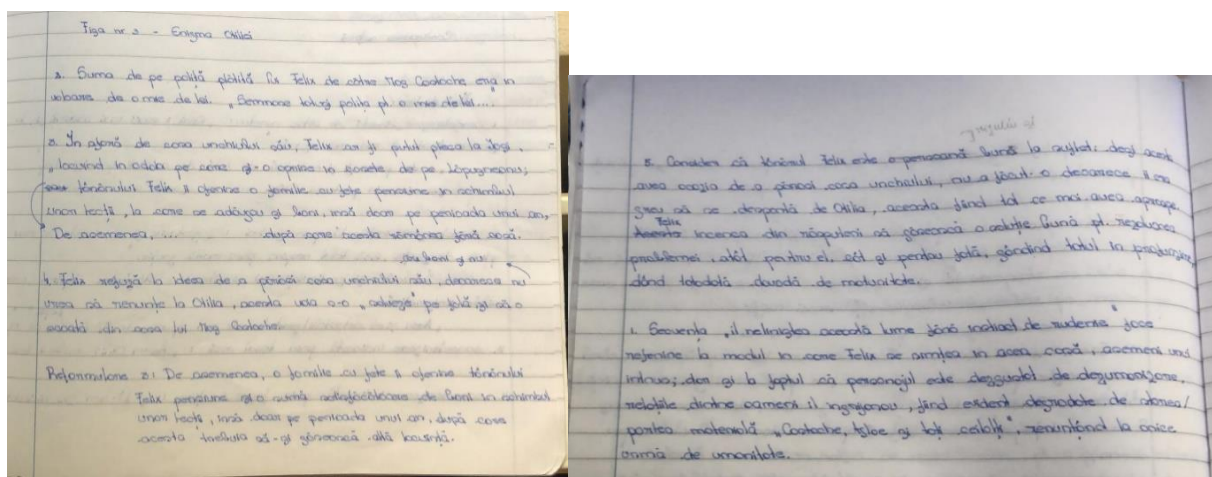 Fișa nr. 3 - Enigma Otiliei
2. Suma de pe poliță plătită lui Felix de către Moș Costache era în
valoare de o mie de lei. „Semnase totuși polița pt. o mie de lei...”
3. În afară de casa unchiului său, Felix ar fi putut pleca la Iași,
„locuind în odăa pe care și-o oprise în Sărărie, de pe Lăpușneanu;
tânărului Felix îi oferise o familie cu fete pensiune în schimbul
unor lecții, la care se adăugau și bani, însă doar pe perioada unui an,
De asemenea, ... după care acesta rămânea fără casă.
sau bani și nu
4. Felix refuză la ideea de a părăsi casa unchiului său, deoarece nu
vrea să renunțe la Otilia, acesta vrea s-o „salveze” pe fată și să o
scoată din casa lui Moș Costache.
Reformulare 3: De asemenea, o familie cu fete îi oferise tânărului
Felix pensiune și o sumă satisfăcătoare de bani în schimbul
unor lecții, însă doar pe perioada unui an, după care
acesta trebuia să-și găsească altă locuință.
5. Consider că tânărul Felix este o persoană bună la suflet, deși acesta
avea ocazia de a părăsi casa unchiului, nu a făcut-o deoarece îi era
greu să se despartă de Otilia, aceasta fiind tot ce mai avea aproape.
Felix
încerca din răsputeri să găsească o soluție bună pt. rezolvarea
problemei, atât pentru el, cât și pentru fată, gândind totul în profunzime,
dând totodată dovadă de maturitate.
1. Secvența „îl neliniștea această lume fără instinct de rudenie” face
referire la modul în care Felix se simțea în acea casă, asemeni unui
intrus; dar și la faptul că personajul este dezgustat de dezumanizare,
relațiile dintre oameni îl îngrijorau, fiind evident degradate de averea/
partea materială „Costache, Aglae și toți ceilalți”, renunțând la orice
urmă de umanitate.